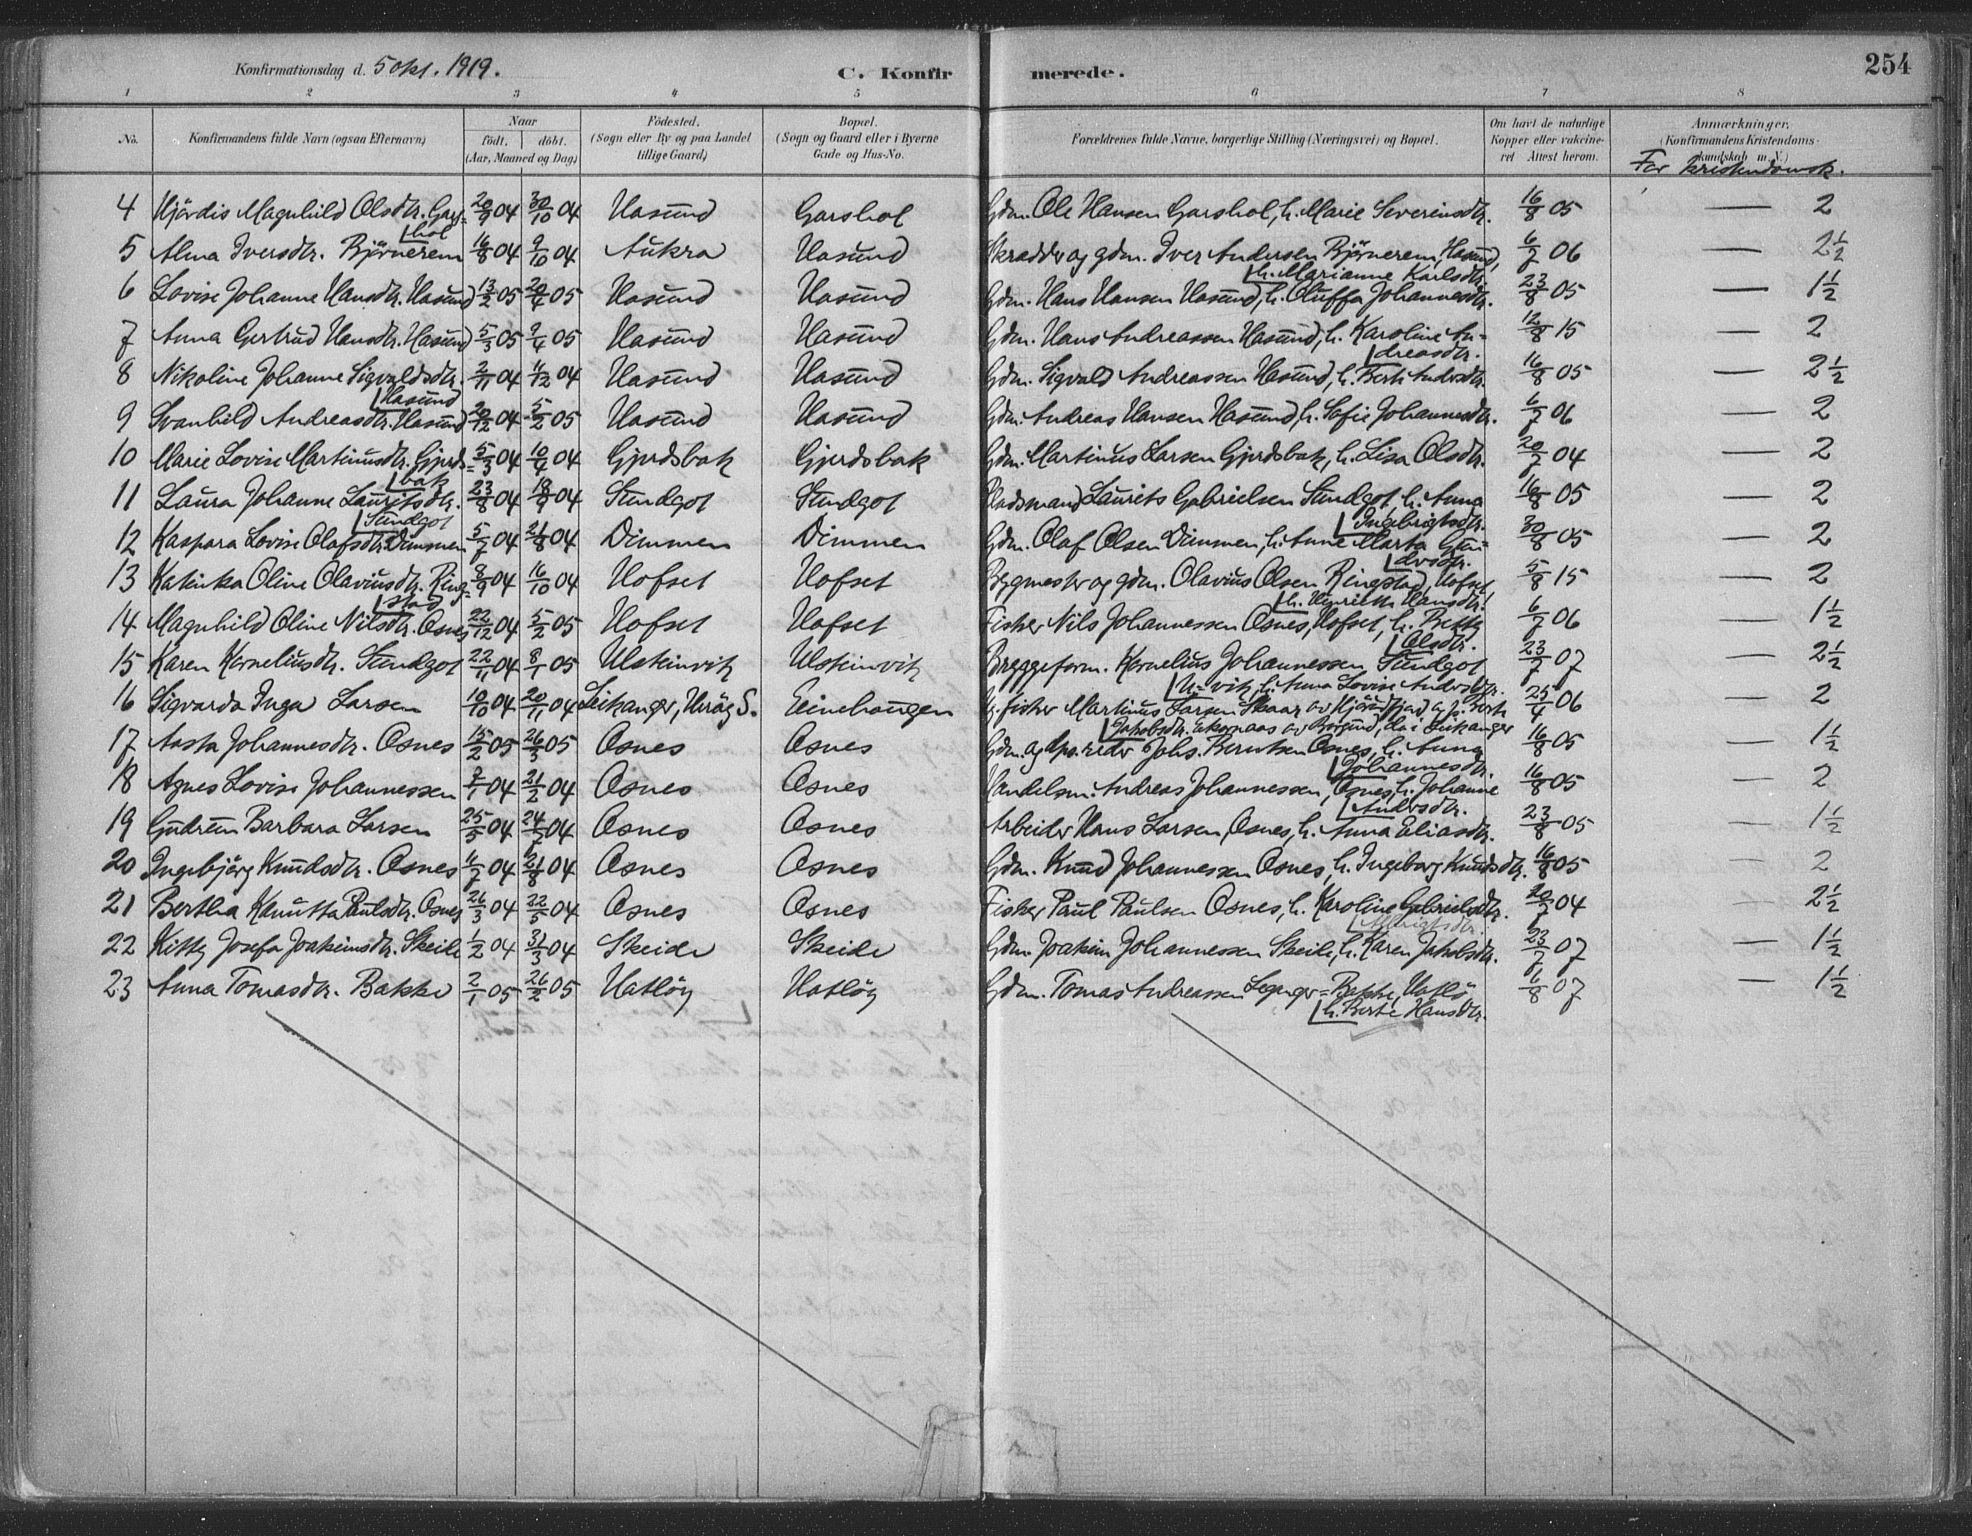 Konfirmationsdag d. 5 okt. 1919. C. Konfirmerede. 254
1 2 3 4 5 6 7 8
No. Konfirmandens fulde Navn (ogsaa Efternavn) Naar födt. döbt. (Aar, Maaned og Dag) Födested. (Sogn eller By og paa Landet tillige Gaard) Bopæl. (Sogn og Gaard eller i Byerne Gade og Hus-No. Forældrenes fulde Navne, borgerlige Stilling (Næringsvei) og Bopæl. Om havt de naturlige Kopper eller vakcineret Attest herom. Anmærkninger. (Konfirmandens Kristendomskundskab m. V.)
For kristendomsk.
4 Hjördis Magnhild Olsdtr. Garshol 20/9 04 30/10 04 Hasund Garshol Gdm. Ole Hansen Garshol, h. Marie Severinsdtr. 16/8 05 — 2
5 Alma Iversdtr. Björnerem 16/8 04 9/10 04 Aukra Hasund Skrædder og gdm. Iver Andersen Björnerem, Hasund, h. Marianne Karlsdtr. 6/7 06 — 2½
6 Lovise Johanne Hansdtr. Hasund 13/2 05 20/4 05 Hasund Hasund Gdm. Hans Hansen Hasund, h. Oluffa Johannesdtr. 23/8 05 — 1½
7 Anna Gertrud Hansdtr. Hasund 5/3 05 9/4 05 Hasund Hasund Gdm. Hans Andreassen Hasund, h. Karoline Andreasdtr. 12/8 15 — 2
8 Nikoline Johanne Sigvaldsdtr. Hasund 2/11 04 4/12 04 Hasund Hasund Gdm. Sigvald Andreassen Hasund, h. Berte Andersdtr. 16/8 05 — 2½
9 Svanhild Andreasdtr. Hasund 20/12 04 5/2 05 Hasund Hasund Gdm. Andreas Hansen Hasund, h. Sofie Johannesdtr. 6/7 06 — 2
10 Marie Lovise Martinusdtr. Gjerdsbak 5/3 04 10/4 04 Gjerdsbak Gjerdsbak Gdm. Martinus Larsen Gjerdsbak, h. Lisa Olsdtr. 20/7 04 — 2
11 Laura Johanne Lauritsdtr. Sundgot 23/8 04 18/9 04 Sundgot Sundgot Pladsmand Laurits Gabrielsen Sundgot, h. Anna Ingebrigtsdtr. 16/8 05 — 2
12 Kaspara Lovise Olafsdtr. Dimmen 5/7 04 21/8 04 Dimmen Dimmen Gdm. Olaf Olsen Dimmen, h. Anne Marta 30/8 05 — 2
13 Katinka Oline Olaviusdtr. Ringstad 8/9 04 16/10 04 Hofset Hofset Bygmester og gdm. Olavius Olsen Ringstad, Hofset h. Henriette Hansdtr. 5/8 15 — 2
14 Magnhild Oline Nilsdtr. Osnes 22/12 04 5/2 05 Hofset Hofset Fisker Nils Johannessen Osnes, Hofset, h. Betty Olsdtr. 6/7 06 — 1½
15 Karen Korneliusdtr. Sundgot 22/11 04 8/1 05 Ulsteinvik Ulsteinvik Bryggeform. Kornelius Johannessen Sundgot U-vik, h. Anna Lovise Andersdtr. 23/7 07 — 2½
16 Sigvarda Inga Larsen 10/10 04 20/11 04 Leikanger, Heröy S. Einehaugen fisker Martinus Larsen Skaar av Hjörundfjord og h. Berte Jakobsdtr. Ekornaas av Borgund, da i Leikanger 25/4 06 — 2
17 Aasta Johannesdtr. Osnes 15/2 05 26/3 05 Osnes Osnes Gdm. og Johs. Berntsen Osnes, h. Anna Johannesdtr. 16/8 05 — 1½
18 Agnes Lovise Johannessen 2/1 04 21/2 04 Osnes Osnes Handelsm. Andreas Johannessen, Osnes, h. Johanne Andersdtr. 16/8 05 — 2
19 Gudrun Barbara Larsen 25/5 04 24/7 04 Osnes Osnes Arbeider Hans Larsen, Osnes, h. Anna Eliasdtr. 23/8 05 — 1½
20 Ingebjörg Knudsdtr. Osnes 4/7 04 21/8 04 Osnes Osnes Gdm. Knud Johannessen Osnes, h. Ingeborg Knudsdtr. 16/8 05 — 2
21 Bertha Knutta Paulsdtr. Osnes 26/3 04 22/5 04 Osnes Osnes Fisker Paul Paulsen Osnes, h. Karoline Gabrielsdtr. 20/7 04 — 2½
22 Kitty Josefa Joakimsdtr. Skeide 1/2 04 31/3 04 Skeide Skeide Gdm. Joakim Johannessen Skeide, h. Karen Jakobsdtr. 23/7 07 — 1½
23 Anna Tomasdtr. Bakke 2/1 05 26/2 05 Hatlöy Hatlöy Gdm. Tomas Andreassen = Bakke, Hatlö h. Berte Hansdtr. 6/8 07 — 1½